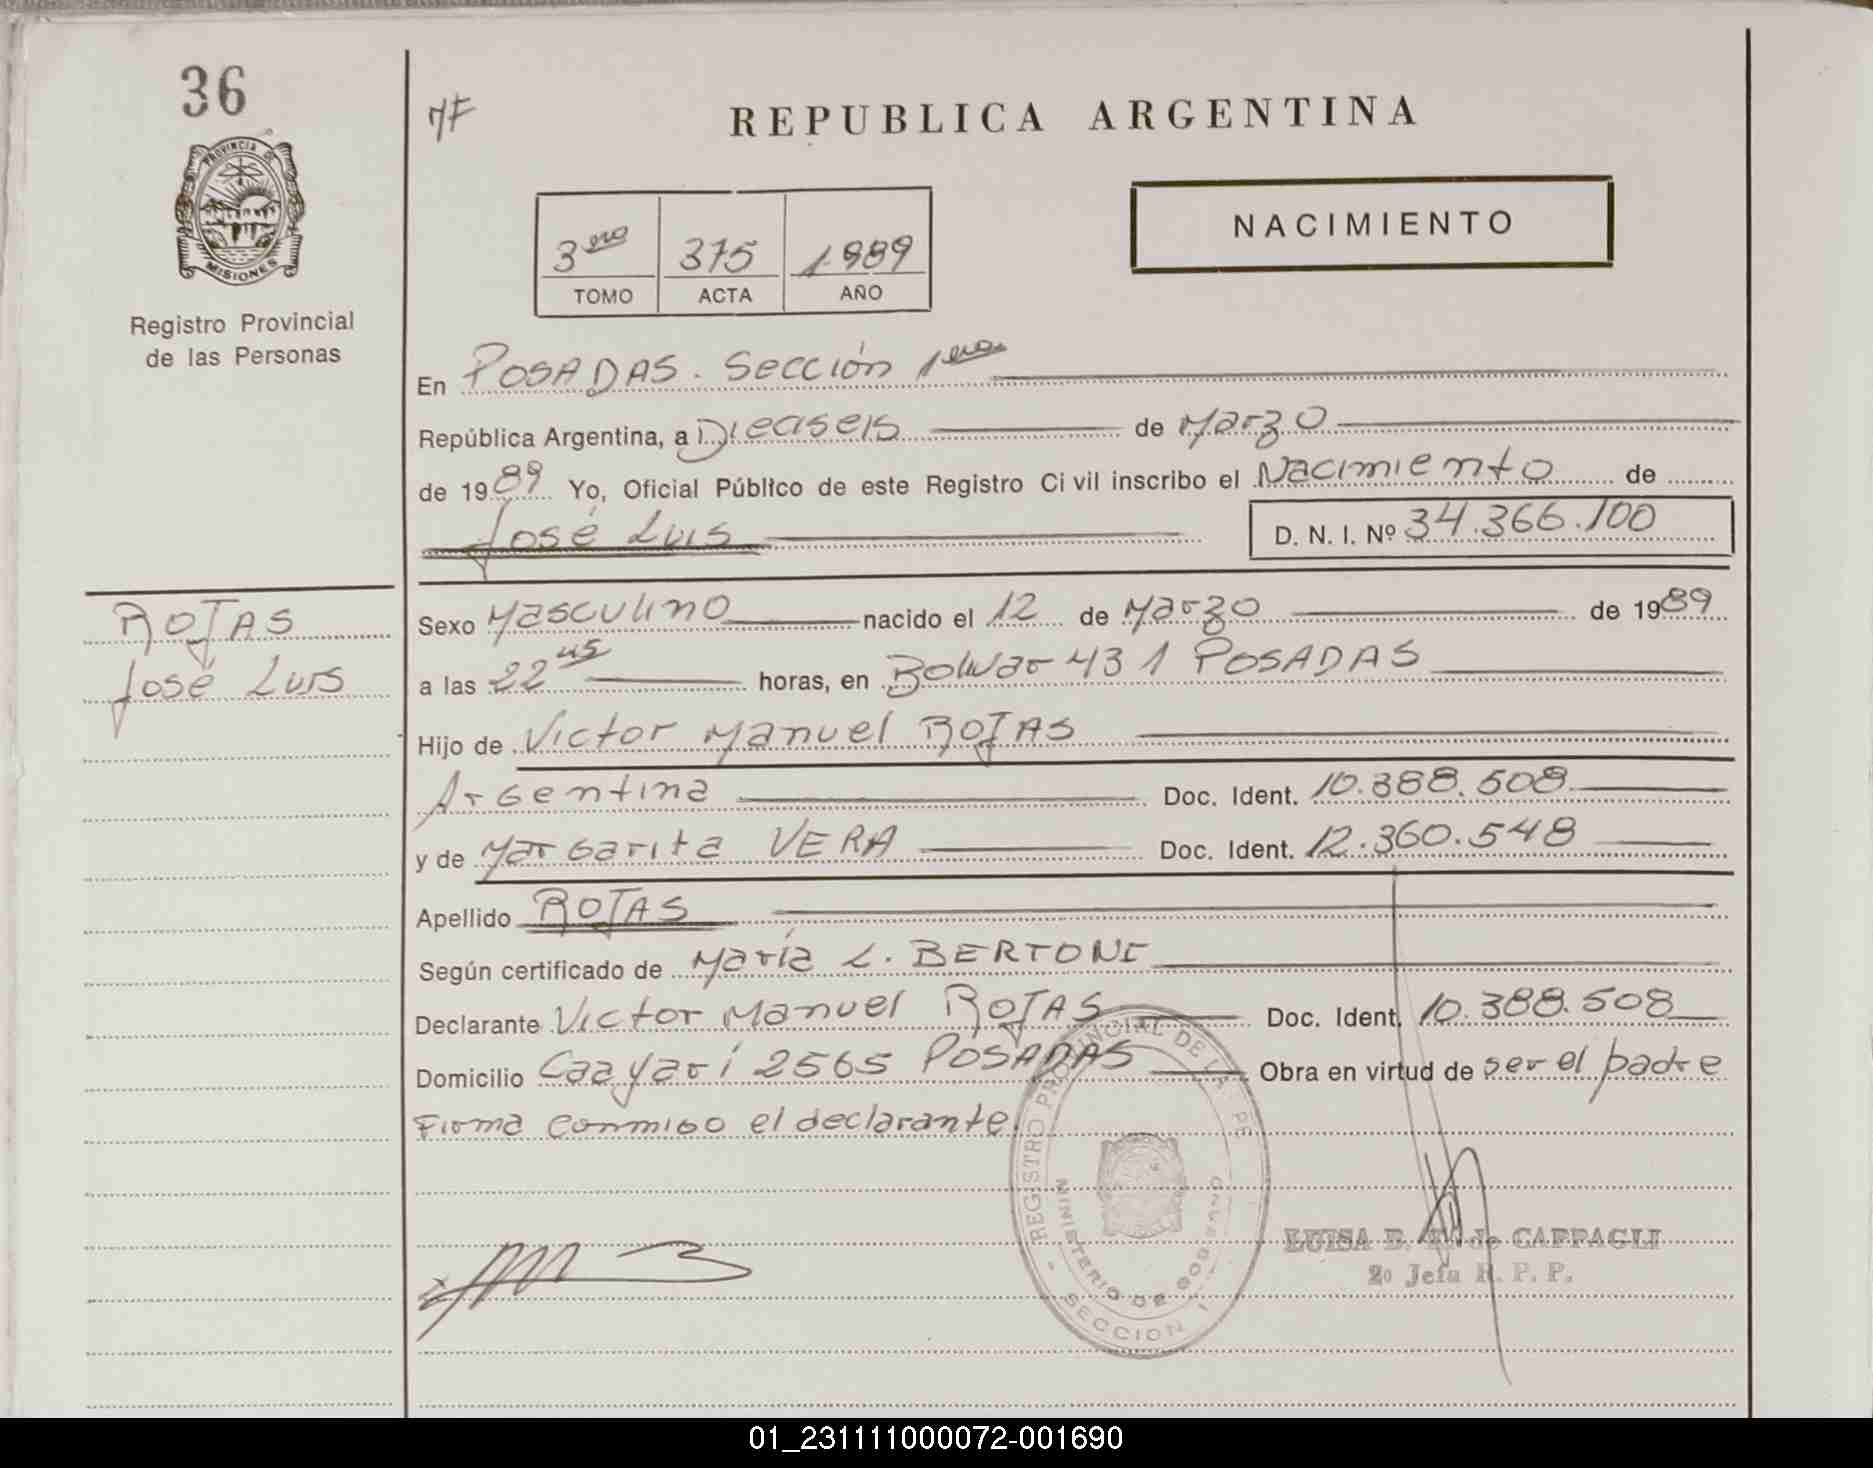 36
MF
REPUBLICA ARGENTINA
PROVINCIA DE
MISIONES
Registro Provincial
de las Personas
3era 375 1989
TOMO ACTA AÑO
NACIMIENTO
En POSADAS. Sección 1era
República Argentina, a Dieciseis de Marzo
de 1989 Yo, Oficial Público de este Registro Civil inscribo el Nacimiento de
José Luis D. N. I. Nº 34.366.100
ROJAS
José Luis
Sexo Masculino nacido el 12 de Marzo de 1989
a las 22 horas, en Bolivar 431 POSADAS
Hijo de Victor Manuel ROJAS
Argentina Doc. Ident. 10.388.508
y de Margarita VERA Doc. Ident. 12.360.548
Apellido ROJAS
Según certificado de María L. BERTONI
Declarante Victor Manuel ROJAS Doc. Ident. 10.388.508
Domicilio Caayarí 2565 POSADAS Obra en virtud de ser el padre
Firma conmigo el declarante.
REGISTRO PROVINCIAL DE LA PE
MINISTERIO DE GOB
SECCION 1
LUISA E. de CAPPAGLI
2º Jefa R. P. P.
01_231111000072-001690